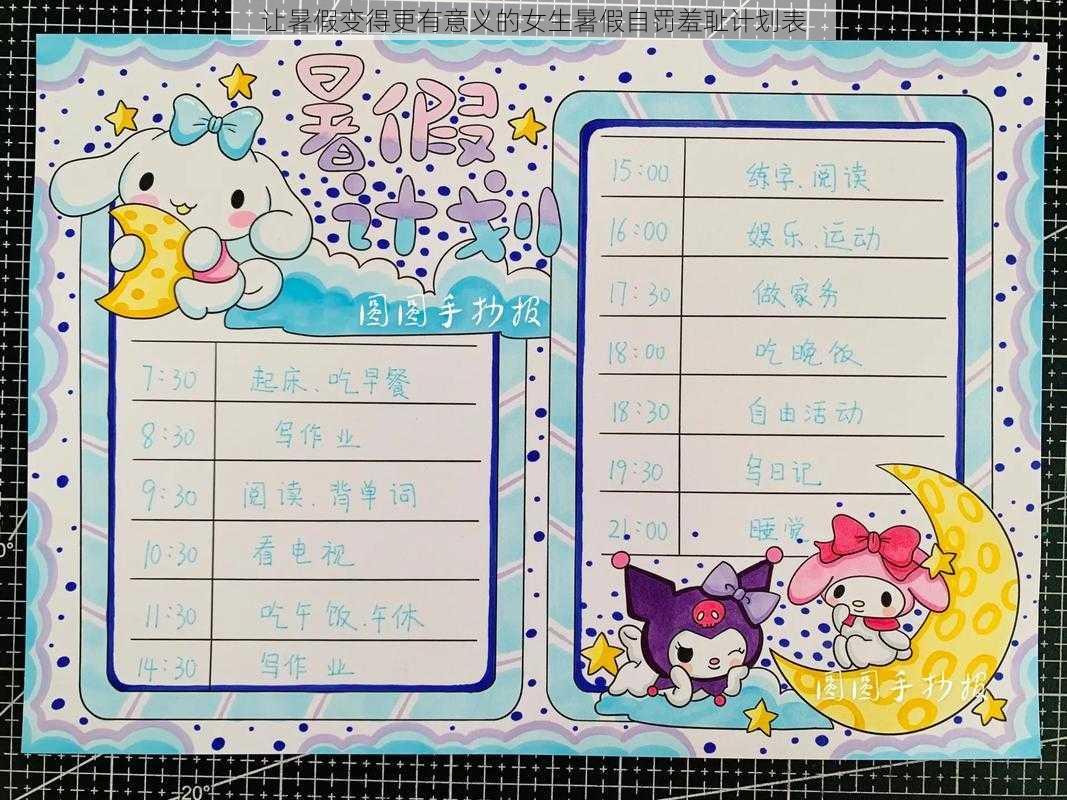 让暑假变得更有意义的女生暑假自罚羞耻计划表
暑假
计划
圆圆手抄报
7:30 起床、吃早餐
8:30 写作业
9:30 阅读、背单词
10:30 看电视
11:30 吃午饭、午休
14:30 写作业
15:00 练字、阅读
16:00 娱乐、运动
17:30 做家务
18:00 吃晚饭
18:30 自由活动
19:30 写日记
21:00 睡觉
圆圆手抄报
0°
20°